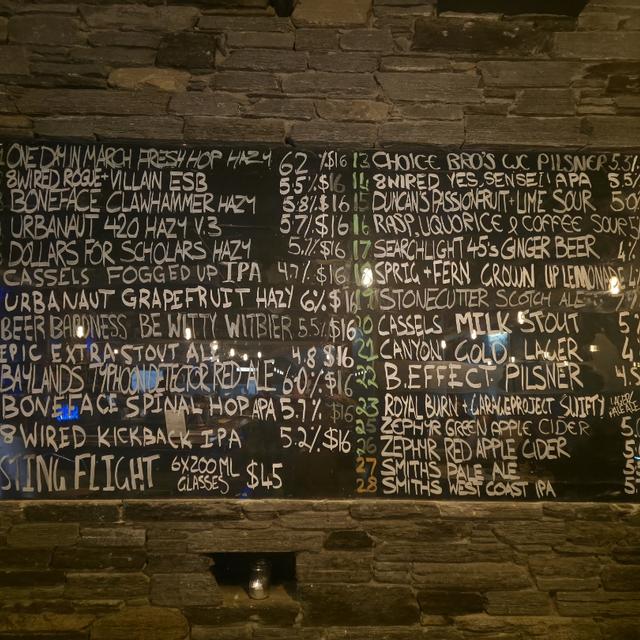 ONE DAY IN MARCH FRESH HOP HAZY 6.2 % $16
8WIRED ROGUE + VILLAIN ESB 5.5% $16
BONEFACE CLAWHAMMER HAZY 5.8% $16
URBANAUT 420 HAZY V.3 5.7% $16
DOLLARS FOR SCHOLARS HAZY 5.1% $16
CASSELS FOGGED UP IPA 4.7% $16
URBANAUT GRAPEFRUIT HAZY 6% $16
BEER BARONESS BE WITTY WITBIER 5.5% $16
EPIC EXTRA STOUT ALE 4.8 $16
BAYLANDS TYPHOON DETECTOR RED ALE 6.0% $16
BONEFACE SPINAL HOP APA 5.7% $16
8 WIRED KICKBACK IPA 5.2% $16
STING FLIGHT 6X200ML GLASSES $45
13 CHOICE BRO'S WC PILSNER 5.3
14 8WIRED YES, SENSEI APA 5.5
15 DUNCAN'S PASSIONFRUIT + LIME SOUR 5.0
16 RASP, LIQUORICE & COFFEE SOUR 5
17 SEARCHLIGHT 45s GINGER BEER 4
18 SPRIG + FERN CROWN UP LEMONADE
19 STONECUTTER SCOTCH ALE
20 CASSELS MILK STOUT 5.
21 CANYON COLD LAGER 4.
22 B.EFFECT PILSNER 4.5
23 ROYAL BURN + GARAGEPROJECT SWIFTY
25 ZEPHYR GREEN APPLE CIDER 5
26 ZEPHYR RED APPLE CIDER 5
27 SMITHS PALE ALE 5
28 SMITHS WEST COAST IPA 5